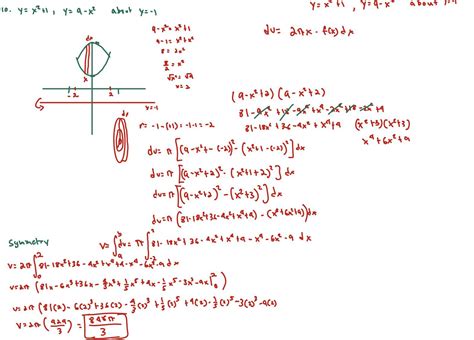 10. y = x²+1, y = 9-x² about y=-1
y = x²+1, y = 9-x² about y=-1
9-x² = x²+1
9-1 = x²+x²
8 = 2x²
8/2 = x²
√x² = √4
x = 2
dx
x
-2 2
y=-1
dv = 2πx · f(x) dx
dx
r = -1-(+1) = -1-1 = -2
(9-x²+2)(9-x²+2)
81-18x²+36-4x²+x⁴+4 (x²+3)(x²+3)
x⁴+6x²+9
dv = π[(9-x²-(-2))² - (x²+1-(-2))²] dx
dv = π[(9-x²+2)² - (x²+1+2)²] dx
dv = π[(9-x²+2)² - (x²+3)²] dx
dv = π(81-18x²+36-4x²+x⁴+4) - (x⁴+6x²+9) dx
Symmetry
V = ∫ dv = π ∫ 81-18x²+36-4x²+x⁴+4-x⁴-6x²-9 dx
V = 2π ∫ 81-18x²+36-4x²+x⁴+4-x⁴-6x²-9 dx
V = 2π (81x-6x³+36x-4/3x³+1/5x⁵+4x-1/5x⁵-3x³-9x)
V = 2π (81(2)-6(2)³+36(2)-4/3(2)³+1/5(2)⁵+4(2)-1/5(2)⁵-3(2)³-9(2)
V = 2π (424/3) = 848π/3